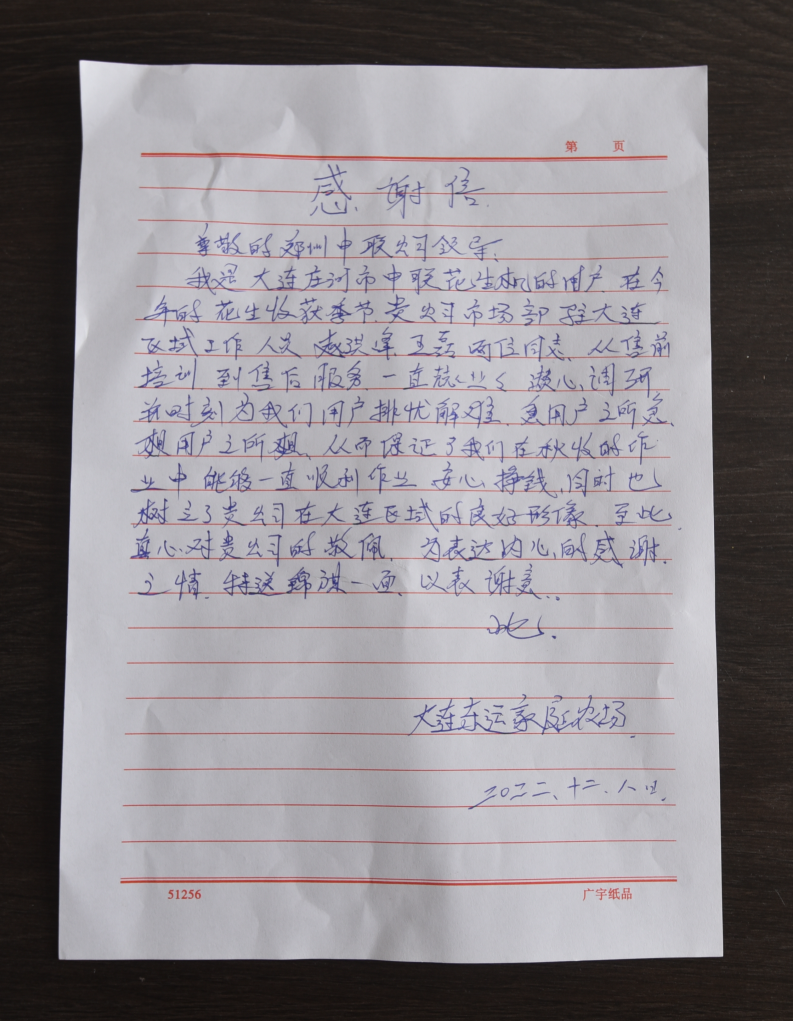 第 页
感谢信
尊敬的郑州中联公司领导:
我是大连庄河市中联花生机的用户.在今
年的花生收获季节.贵公司市场部驻大连
区域工作人员 洪峰.王磊两位同志.从售前
培训.到售后服务.一直兢兢业业 潜心调研
并时刻为我们用户排忧解难.急用户之所急.
想用户之所想.从而保证了我们在秋收的作
业中能够一直顺利作业 安心挣钱,同时也
树立了贵公司在大连区域的良好形像.至此
真心对贵公司的敬佩. 为表达内心的感谢
之情.特送锦旗一面.以表谢意..
此.
大连东运家庭农场.
二〇二二、十二.八日.
51256
广宇纸品